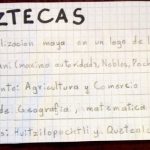 ZTECAS
ilizacion maya en un lago de l
ani (maxima autoridad), Nobles, Poch
nte: Agricultura y Comercio
de Geografía, matematica
s: Huitzilopochtli y Quetzalc